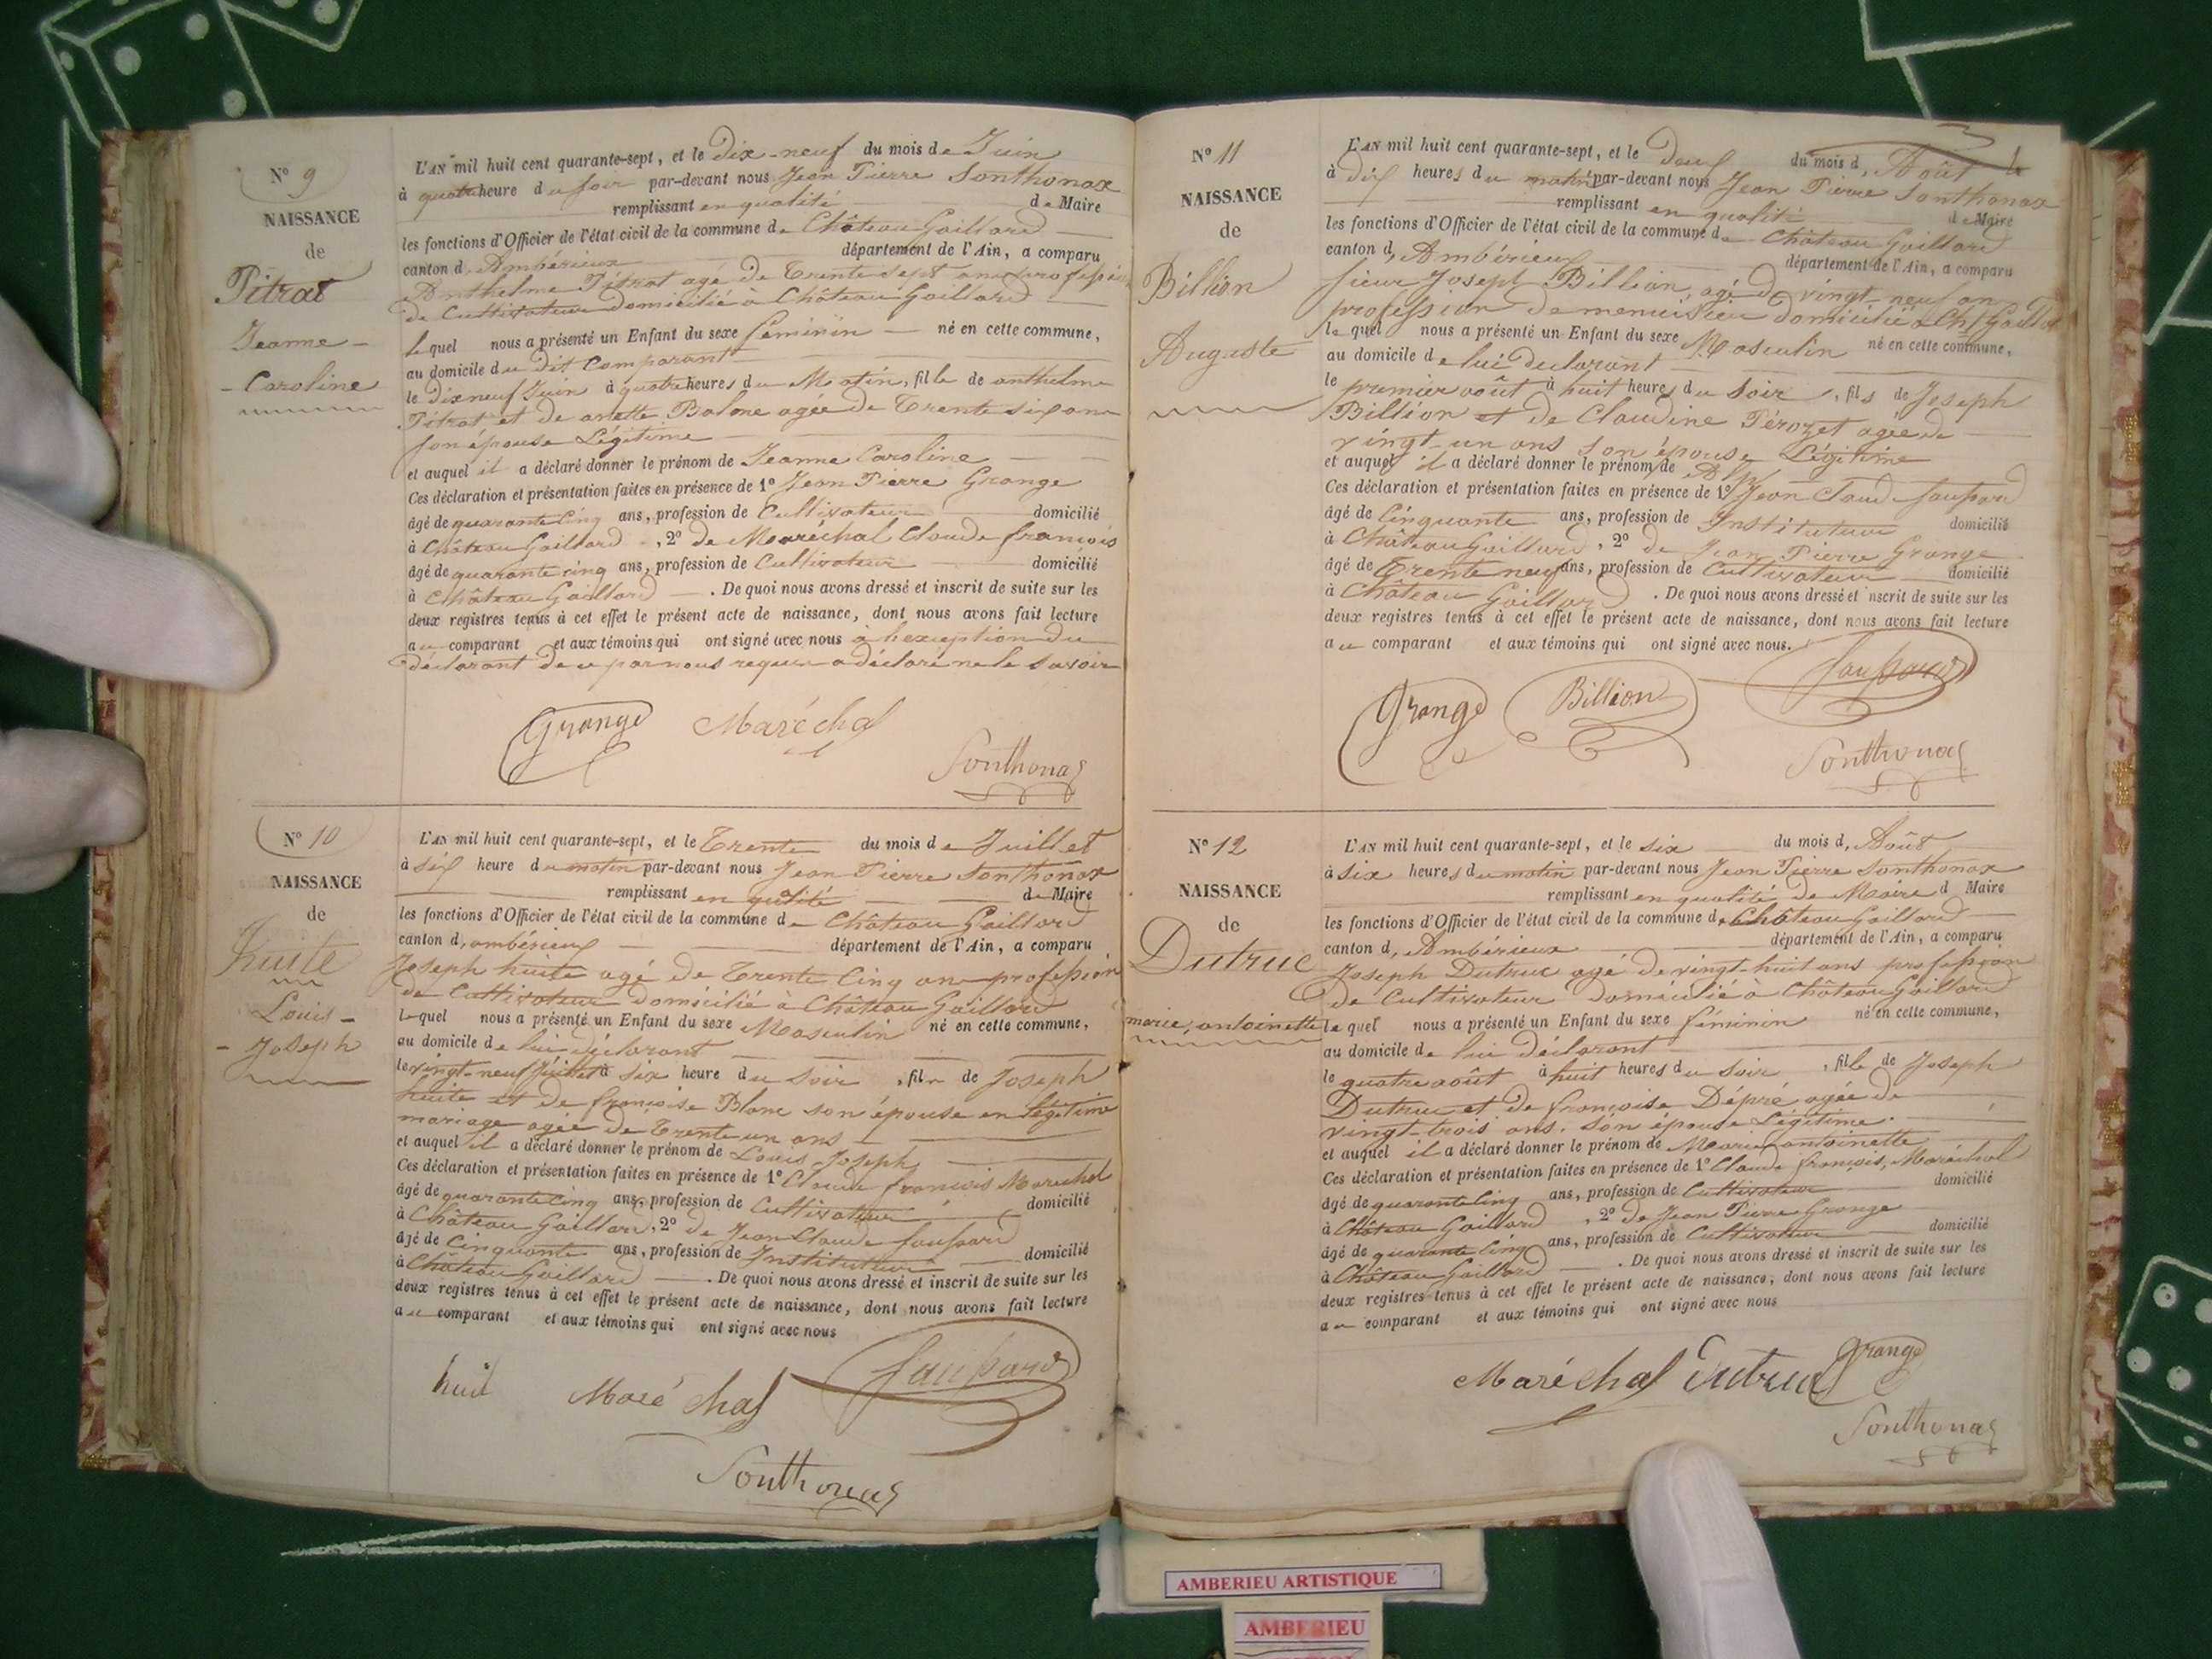 N° 9
NAISSANCE
de
Pitrat
Jeanne -
- Caroline
L'AN mil huit cent quarante-sept, et le Dix-neuf du mois de Juin
à quatre heure du soir par-devant nous Jean Pierre Sonthonax
remplissant en qualité de Maire
les fonctions d'Officier de l'état civil de la commune de Château Gaillard
canton d'Ambérieux département de l'Ain, a comparu
Anthelme Pitrat agé de Trente sept ans profession
de Cultivateur domicilié à Château Gaillard
lequel nous a présenté un Enfant du sexe féminin né en cette commune,
au domicile du dit Comparant
le dix neuf Juin à quatre heures du Matin, fille de anthelme
Pitrat et de anette Balme agée de Trente six ans
son épouse Légitime
et auquel il a déclaré donner le prénom de Jeanne Caroline
Ces déclaration et présentation faites en présence de 1° Jean Pierre Grange
âgé de quarante Cinq ans, profession de Cultivateur domicilié
à Château Gaillard, 2° de Maréchal Claude françois
âgé de quarante cinq ans, profession de Cultivateur domicilié
à Château Gaillard. De quoi nous avons dressé et inscrit de suite sur les
deux registres tenus à cet effet le présent acte de naissance, dont nous avons fait lecture
au comparant et aux témoins qui ont signé avec nous à l'exception du
déclarant de ce par nous requis a déclaré ne le savoir
Grange Maréchal
Sonthonax
N° 10
NAISSANCE
de
huite
Louis -
- Joseph
L'AN mil huit cent quarante-sept, et le Trente du mois de Juillet
à six heure du matin par-devant nous Jean Pierre Sonthonax
remplissant en qualité de Maire
les fonctions d'Officier de l'état civil de la commune de Château Gaillard
canton d'ambérieux département de l'Ain, a comparu
Joseph huite agé de Trente Cinq ans profession
de Cultivateur domicilié à Château Gaillard
lequel nous a présenté un Enfant du sexe Masculin né en cette commune,
au domicile de lui déclarant
le vingt-neuf Juillet à six heure du soir, fils de Joseph
huite et de françoise Blanc son épouse en légitime
mariage agée de Trente un ans
et auquel il a déclaré donner le prénom de Louis Joseph
Ces déclaration et présentation faites en présence de 1° Claude françois Maréchal
âgé de quarante Cinq ans, profession de Cultivateur domicilié
à Château Gaillard, 2° de Jean Claude faussard
âgé de Cinquante ans, profession de Instituteur domicilié
à Château Gaillard. De quoi nous avons dressé et inscrit de suite sur les
deux registres tenus à cet effet le présent acte de naissance, dont nous avons fait lecture
au comparant et aux témoins qui ont signé avec nous
huit Maréchal faussard
Sonthonax
N° 11
NAISSANCE
de
Billion
Auguste
L'AN mil huit cent quarante-sept, et le Deux du mois d'Août
à Dix heures du matin par-devant nous Jean Pierre Sonthonax
remplissant en qualité de Maire
les fonctions d'Officier de l'état civil de la commune de Château Gaillard
canton d'Ambérieux département de l'Ain, a comparu
sieur Joseph Billion, agé de vingt-neuf an
profession de menuisier domicilié à Ch/Gaillard
lequel nous a présenté un Enfant du sexe Masculin né en cette commune,
au domicile de lui déclarant
le premier août à huit heures du soir, fils de Joseph
Billion et de Claudine Pérozet agée de
vingt-un ans son épouse Légitime
et auquel il a déclaré donner le prénom de
Ces déclaration et présentation faites en présence de 1° Jean Claude faussard
âgé de Cinquante ans, profession de Instituteur domicilié
à Château Gaillard, 2° de Jean Pierre Grange
âgé de Trente neuf ans, profession de Cultivateur domicilié
à Château Gaillard. De quoi nous avons dressé et inscrit de suite sur les
deux registres tenus à cet effet le présent acte de naissance, dont nous avons fait lecture
au comparant et aux témoins qui ont signé avec nous.
Grange Billion faussard
Sonthonax
N° 12
NAISSANCE
de
Dutruc
marie, antoinette
L'AN mil huit cent quarante-sept, et le six du mois d'Août
à six heures du matin par-devant nous Jean Pierre Sonthonax
remplissant en qualité de Maire d Maire
les fonctions d'Officier de l'état civil de la commune de Château Gaillard
canton d'Ambérieux département de l'Ain, a comparu
Joseph Dutruc agé de vingt-huit ans profession
de Cultivateur domicilié à Château Gaillard
lequel nous a présenté un Enfant du sexe féminin né en cette commune,
au domicile de lui déclarant
le quatre août à huit heures du soir, fille de Joseph
Dutruc et de françoise Dépré agée de
vingt-trois ans. son épouse Légitime.
et auquel il a déclaré donner le prénom de Marie antoinette
Ces déclaration et présentation faites en présence de 1° Claude françois, Maréchal
âgé de quarante Cinq ans, profession de Cultivateur domicilié
à Château Gaillard, 2° de Jean Pierre Grange
âgé de quarante Cinq ans, profession de Cultivateur domicilié
à Château Gaillard. De quoi nous avons dressé et inscrit de suite sur les
deux registres tenus à cet effet le présent acte de naissance, dont nous avons fait lecture
au comparant et aux témoins qui ont signé avec nous
Maréchal Dutruc Grange
Sonthonax
AMBERIEU ARTISTIQUE
AMBERIEU